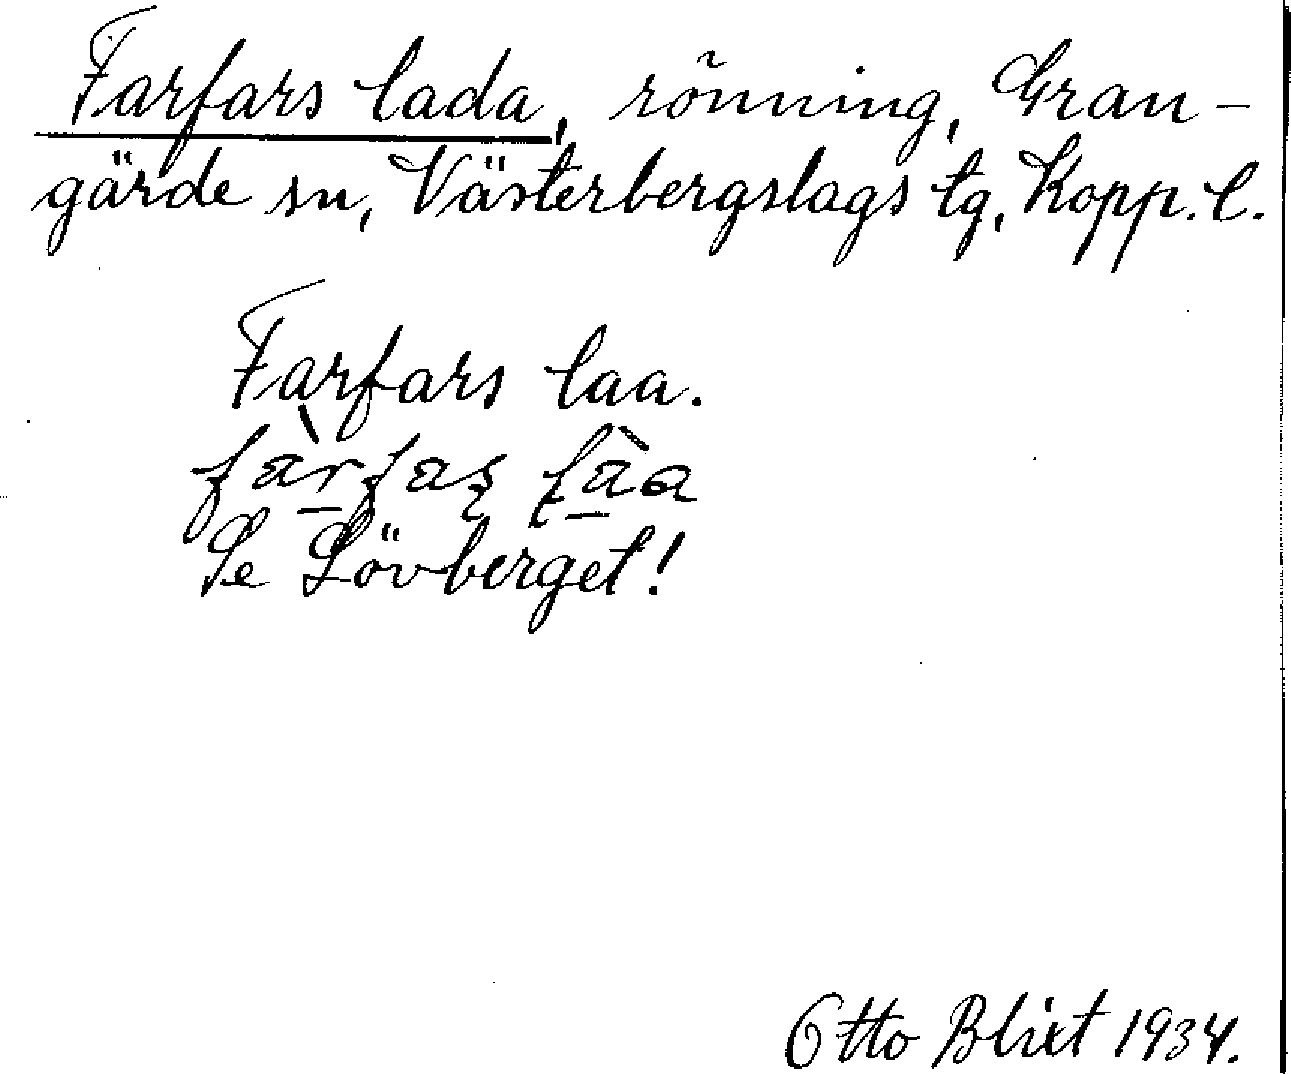 Farfars lada, rönning, Gran-
gärde sn, Västerbergslags tg, Kopp. l.
Farfars laa.
Se Lövberget!
Otto Blixt 1934.